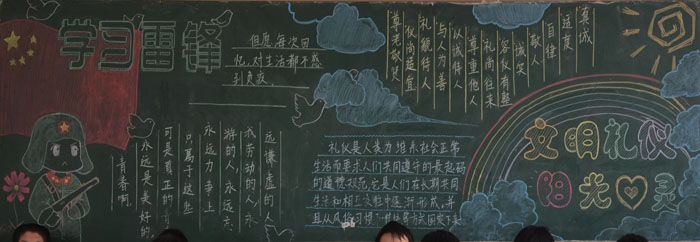 学习雷锋
但愿每次回
忆，对生活都不感
到负疚
青春啊
永远是美好的
可是真正的
只属于这些
永远力争上
游的人，永远忘
我劳动的人，永
远谦虚的人
真诚
适度
自律
敬人
容仪有整
礼尚往来
尊重他人
以诚待人
与人为善
礼貌待人
仪尚适宜
尊老敬贤
礼仪是人类为维系社会正常
生活而要求人们共同遵守的最起码
的道德规范，它是人们在长期共同
生活和相互交往中逐渐形成，并
且以风俗习惯和传统等方式固定下来
文明礼仪
阳光♡灵